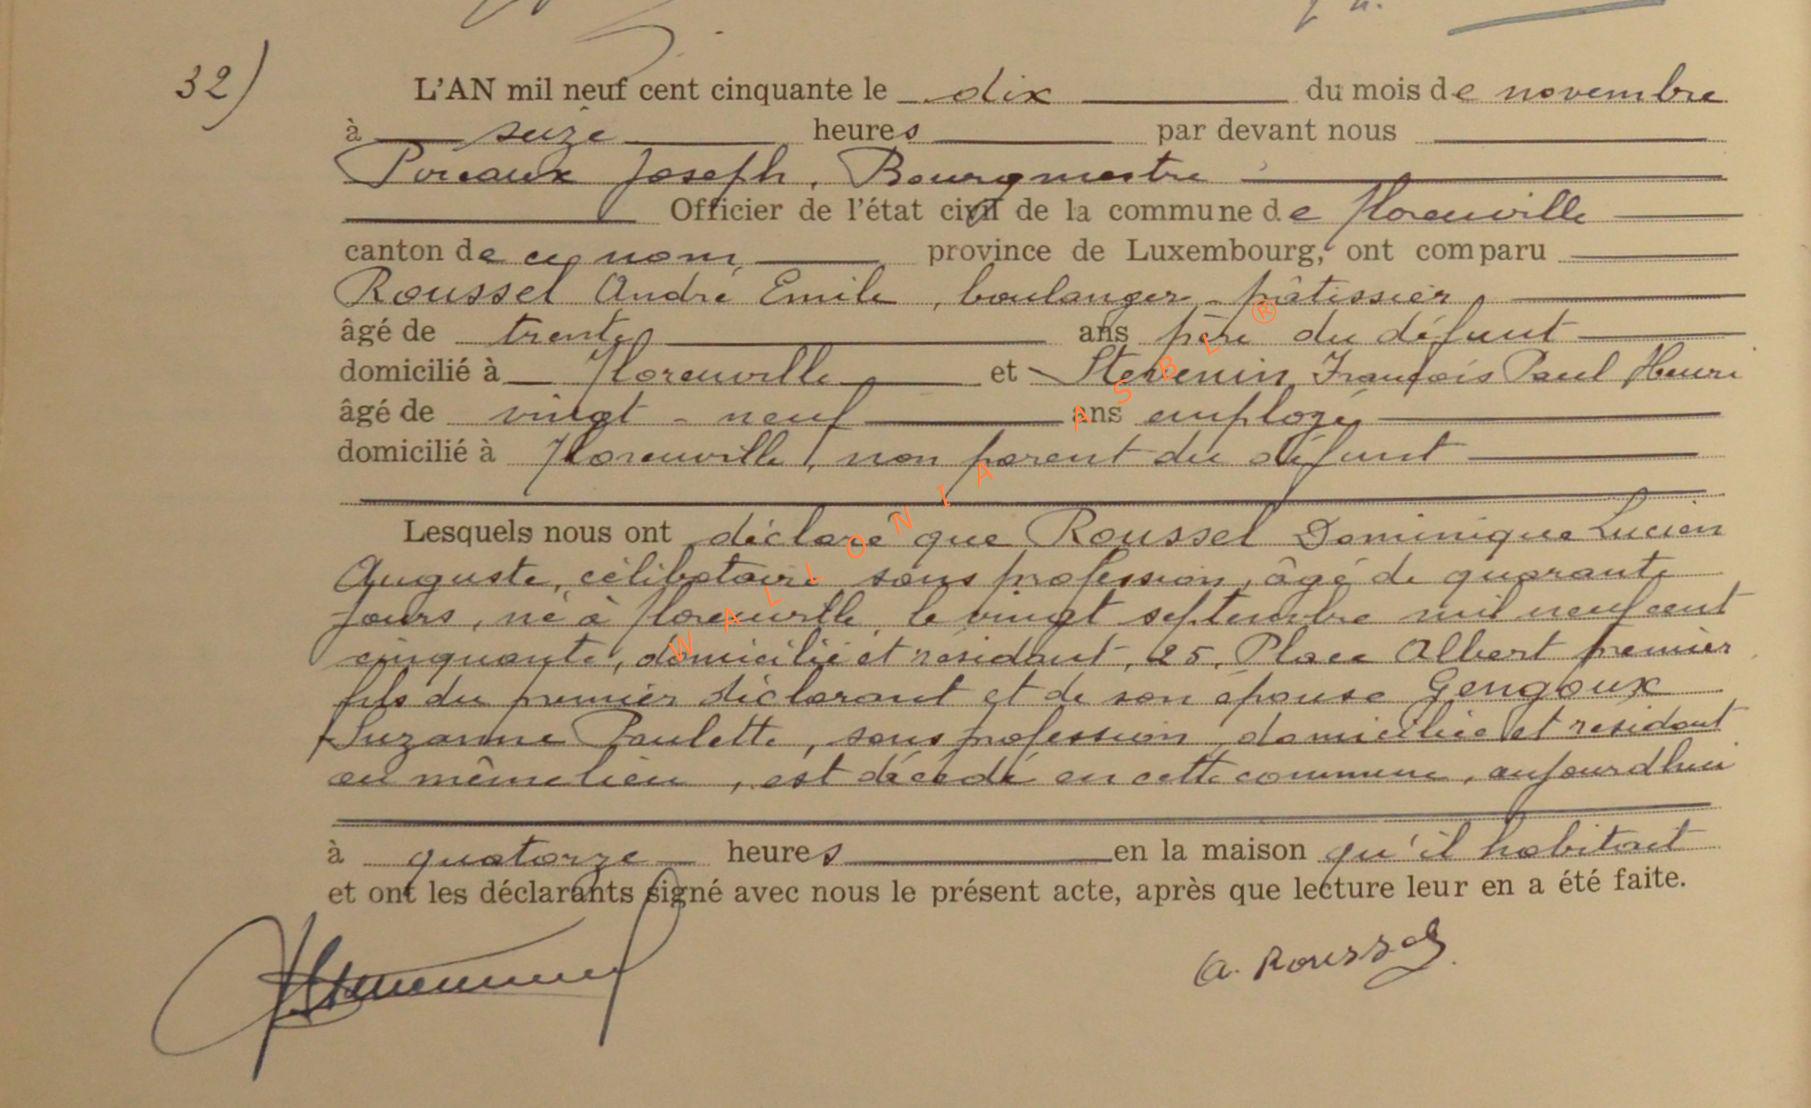 32)
L'AN mil neuf cent cinquante le dix du mois de novembre
à seize heures par devant nous
Poncaux Joseph, Bourgmestre
Officier de l'état civil de la commune de Florenville
canton de ce nom, province de Luxembourg, ont comparu
Roussel André Emile, boulanger-pâtissier,
âgé de trente ans père du défunt
domicilié à Florenville et Stevenin François Paul Henri
âgé de vingt-neuf ans employé
domicilié à Florenville, non parent du défunt
Lesquels nous ont déclaré que Roussel Dominique Lucien
Auguste, célibataire sans profession, âgé de quarante
jours, né à Florenville, le vingt septembre mil neuf cent
cinquante, domicilié et résidant, 25, Place Albert premier
fils du premier déclarant et de son épouse Gengoux
Suzanne Paulette, sans profession domiciliée et résidant
au même lieu, est décédé en cette commune, aujourd'hui
à quatorze heures en la maison qu'il habitait
et ont les déclarants signé avec nous le présent acte, après que lecture leur en a été faite.
A. Roussel
WALLONIA ASBL ®